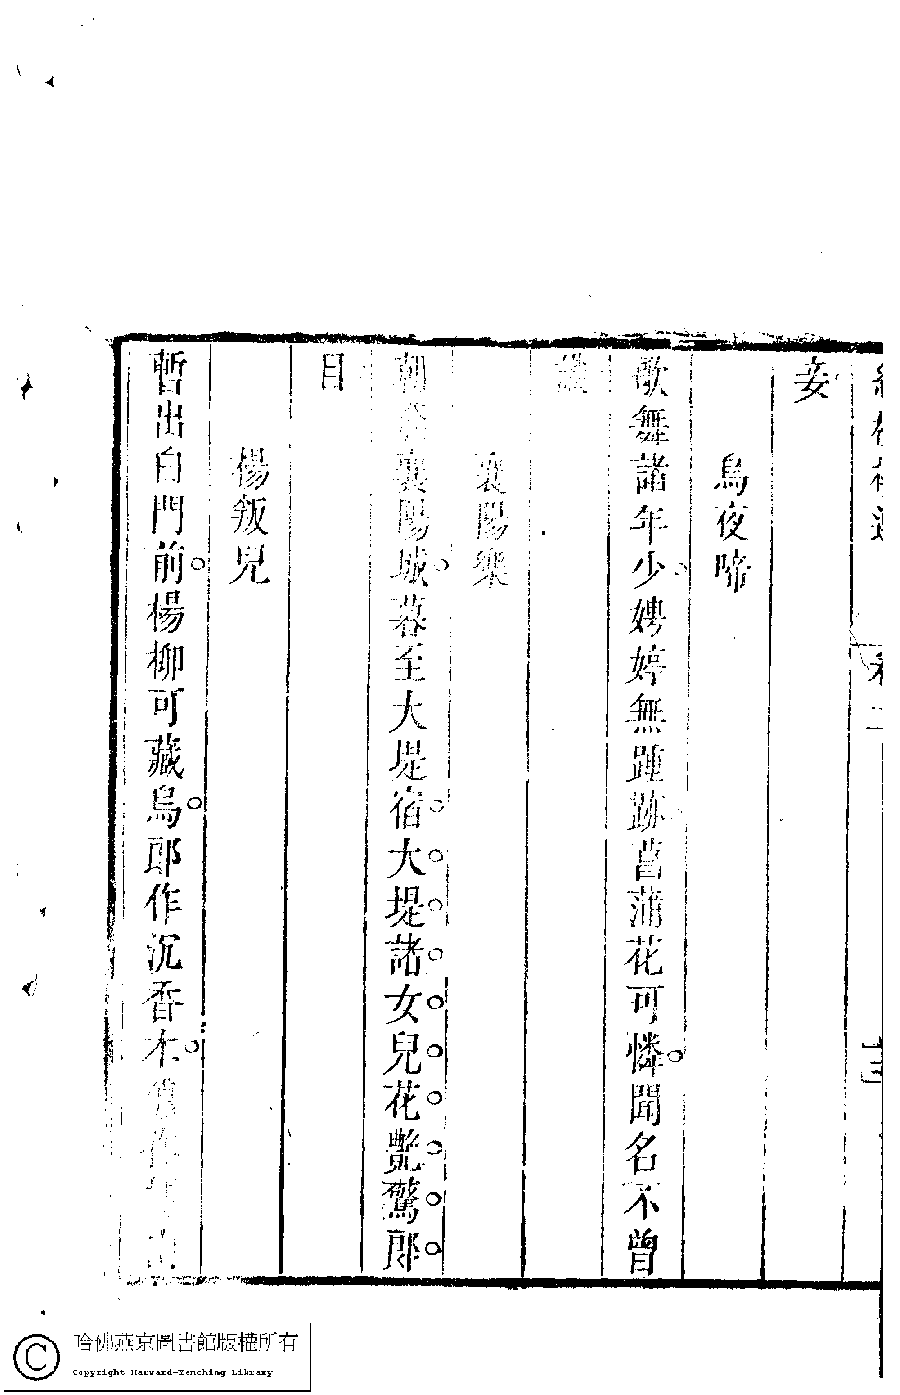 卷二
妾
烏夜啼
歌舞諸年少娉婷無踵跡菖蒲花可憐聞名不曾
識
襄陽樂
朝發襄陽城暮至大堤宿大堤諸女兒花艷驚郎
目
楊叛兒
暫出白門前楊柳可藏烏郎作沉香木
哈佛燕京圖書館版權所有
Copyright Harvard-Yenching Library